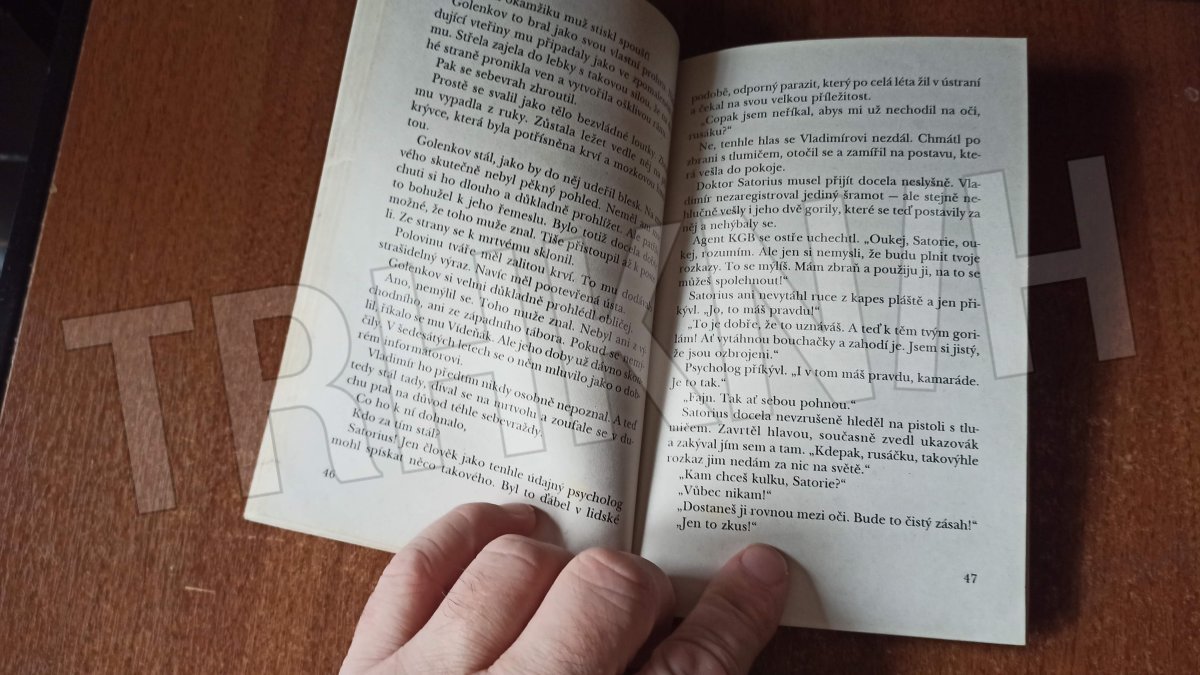 okamžiku muž stiskl spoušť!
Golenkov to bral jako svou vlastní
dující vteřiny mu připadaly jako ve
mu. Střela zajela do lebky s takovou silou, že
hé straně pronikla ven a vytvořila ošklivou
Pak se sebevrah zhroutil.
Prostě se svalil jako tělo bezvládné loutky.
mu vypadla z ruky. Zůstala ležet vedle něj na
krývce, která byla potřísněna krví a mozkovou
tou.
Golenkov stál, jako by do něj udeřil blesk. Na
vého skutečně nebyl pěkný pohled. Neměl ani
chuti si ho dlouho a důkladně prohlížet. Ale
to bohužel k jeho řemeslu. Bylo totiž docela
možné, že toho muže znal. Tiše přistoupil až k
li. Ze strany se k mrtvému sklonil.
Polovinu tváře měl zalitou krví. To mu dodávalo
strašidelný výraz. Navíc měl pootevřená ústa.
Golenkov si velmi důkladně prohlédl obličej.
Ano, nemýlil se. Toho muže znal. Nebyl ani z
chodního, ani ze západního tábora. Pokud se
lil, říkalo se mu Vídeňák. Ale jeho doby už dávno
čily. V šedesátých letech se o něm mluvilo jako o dob-
rém informátorovi.
Vladimír ho předtím nikdy osobně nepoznal. A teď
tedy stál tady, díval se na mrtvolu a zoufale se v du-
chu ptal na důvod téhle sebevraždy.
Co ho k ní dohnalo,
Kdo za tím stál?
Satorius! Jen člověk jako tenhle údajný psycholog
mohl spískat něco takového. Byl to ďábel v lidské
46
podobě, odporný parazit, který po celá léta žil v ústraní
a čekal na svou velkou příležitost.
„Copak jsem neříkal, abys mi už nechodil na oči,
rusáku?“
Ne, tenhle hlas se Vladimírovi nezdál. Chmátl po
zbrani s tlumičem, otočil se a zamířil na postavu, kte-
rá vešla do pokoje.
Doktor Satorius musel přijít docela neslyšně. Vla-
dimír nezaregistroval jediný šramot — ale stejně ne-
hlučně vešly i jeho dvě gorily, které se teď postavily za
něj a nehýbaly se.
Agent KGB se ostře uchechtl. „Oukej, Satorie, ou-
kej, rozumím. Ale jen si nemysli, že budu plnit tvoje
rozkazy. To se mýlíš. Mám zbraň a použiju ji, na to se
můžeš spolehnout!“
Satorius ani nevytáhl ruce z kapes pláště a jen při-
kývl. „Jo, to máš pravdu!“
„To je dobře, že to uznáváš. A teď k těm tvým gori-
lám! Ať vytáhnou bouchačky a zahodí je. Jsem si jistý,
že jsou ozbrojeni.“
Psycholog příkývl. „I v tom máš pravdu, kamaráde.
Je to tak.“
„Fajn. Tak ať sebou pohnou.“
Satorius docela nevzrušeně hleděl na pistoli s tlu-
mičem. Zavrtěl hlavou, současně zvedl ukazovák
a zakýval jím sem a tam. „Kdepak, rusáčku, takovýhle
rozkaz jim nedám za nic na světě.“
„Kam chceš kulku, Satorie?“
„Vůbec nikam!“
„Dostaneš ji rovnou mezi oči. Bude to čistý zásah!“
„Jen to zkus!“
47